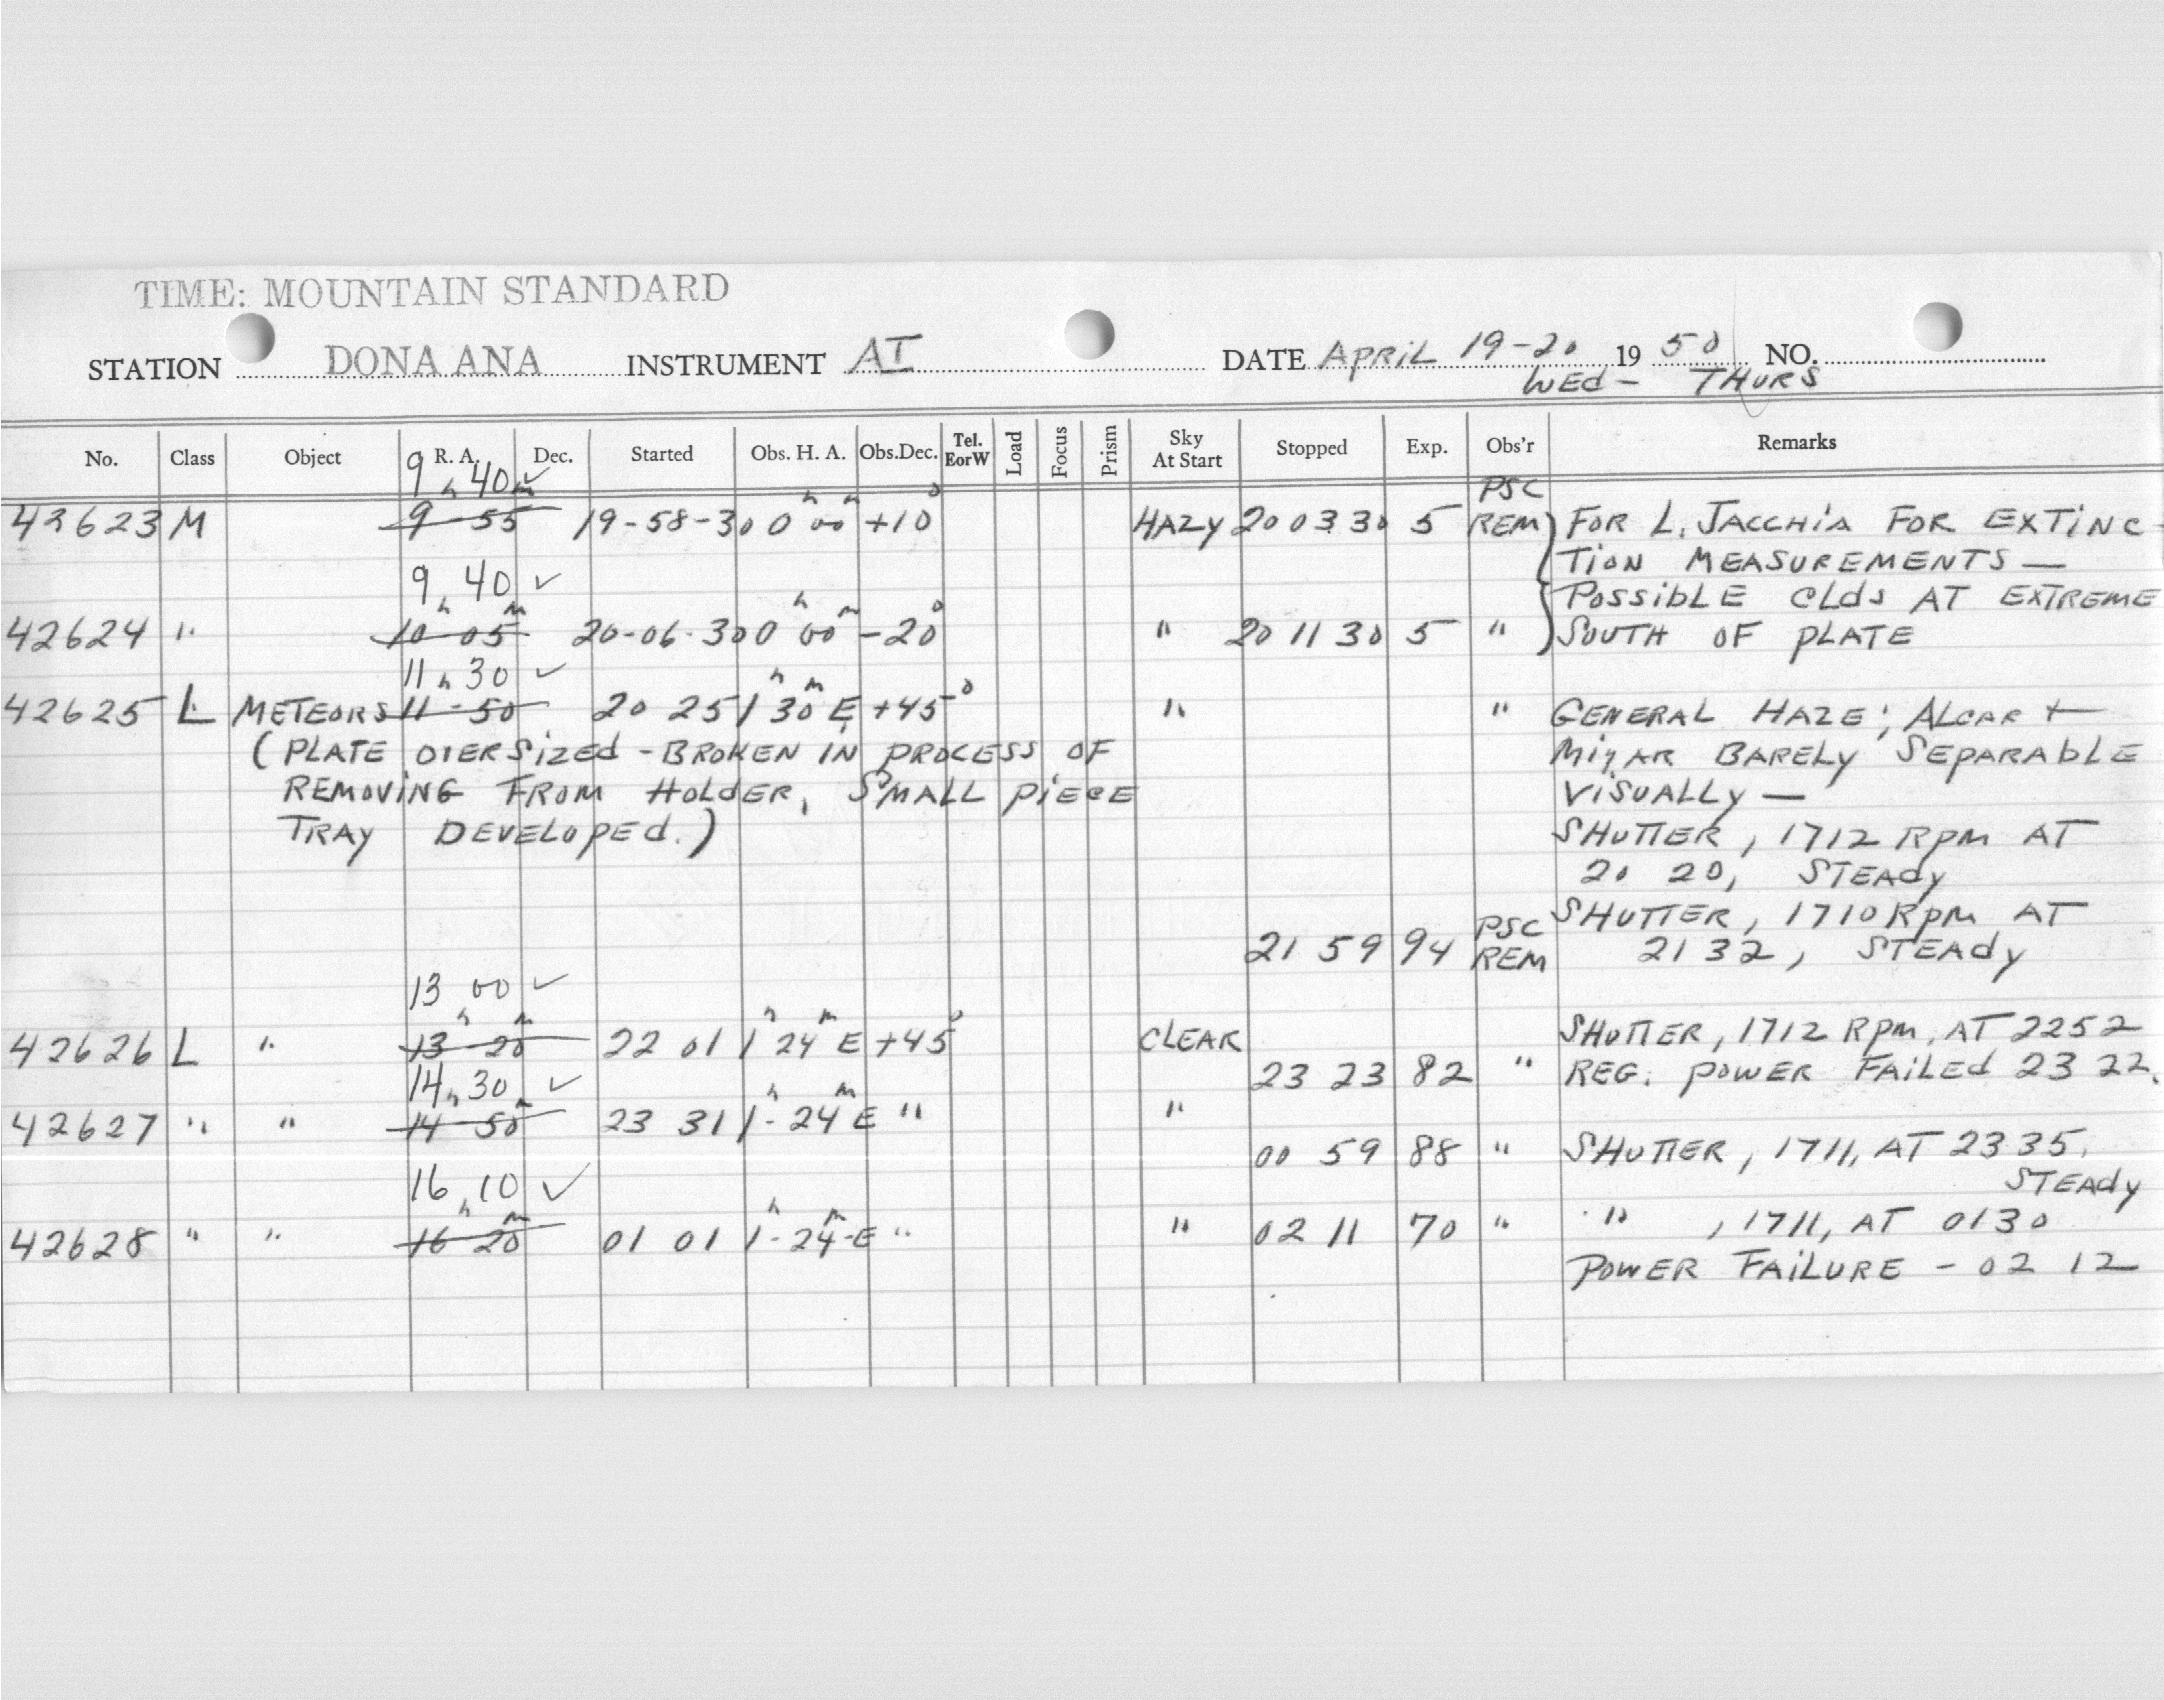 TIME: MOUNTAIN STANDARD
STATION DONA ANA INSTRUMENT AI DATE APRIL 19-20 1950 NO.
WED - THURS
No. Class Object R. A. Dec. Started Obs. H. A. Obs.Dec. Tel. EorW Load Focus Prism Sky At Start Stopped Exp. Obs'r Remarks
9h 40m ✓ PSC
42623 M 9 55 19-58-30 0h 00m +10° HAZY 20 03 30 5 REM FOR L. JACCHIA FOR EXTINC-
TION MEASUREMENTS —
9h 40m ✓ POSSIBLE CLDS AT EXTREME
42624 " 10 05 20-06-30 0h 00m -20° " 20 11 30 5 " SOUTH OF PLATE
11h 30 ✓
42625 L METEORS 11-50 20 25 1h 30m E +45° " " GENERAL HAZE; ALCAR +
(PLATE OVERSIZED - BROKEN IN PROCESS OF MIZAR BARELY SEPARABLE
REMOVING FROM HOLDER, SMALL PIECE VISUALLY —
TRAY DEVELOPED.) SHUTTER, 1712 RPM AT
20 20, STEADY
PSC SHUTTER, 1710 RPM AT
21 59 94 REM 21 32, STEADY
13h 00m ✓
42626 L " 13 20 22 01 1h 24m E +45° CLEAR SHUTTER, 1712 RPM, AT 2252
14h 30m ✓ 23 23 82 " REG. POWER FAILED 23 22.
42627 " " 14 50 23 31 1h-24m E " "
00 59 88 " SHUTTER, 1711, AT 23 35,
16h 10m ✓ STEADY
42628 " " 16 20 01 01 1h-24m-E " " 02 11 70 " " , 1711, AT 0130
POWER FAILURE - 02 12